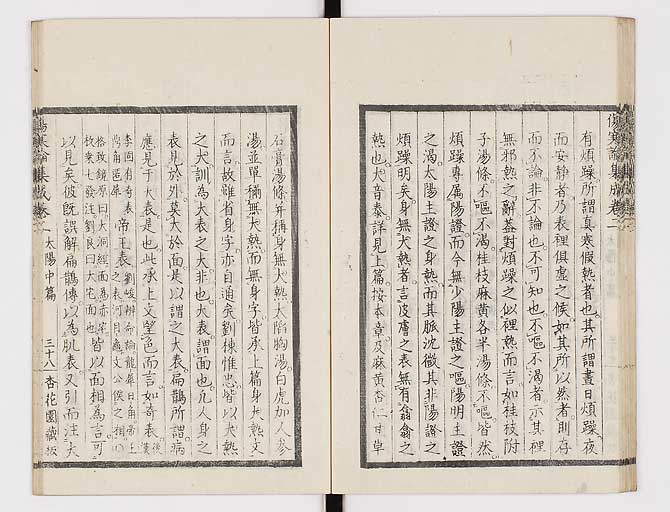 傷寒論集成卷二
有煩躁所謂真寒假熱者也其所謂晝日煩躁夜
而安靜者乃表裡俱虛之候如其所以然者則存
而不論非不論也不可知也不嘔不渴者示其裡
無邪熱之辭蓋對煩躁之似裡熱而言如桂枝附
子湯條不嘔不渴桂枝麻黃各半湯條不嘔皆然
煩躁專屬陽證而今無少陽主證之嘔陽明主證
之渴太陽主證之身熱而其脈沈微其非陽證之
煩躁明矣身無大熱者言皮膚之表無有翕翕之
熱也大音泰詳見上篇按本章及麻黃杏仁甘草
石膏湯條并稱身無大熱大陷胸湯白虎加人參
湯並單稱無大熱而無身字皆承上篇身大熱文
而言故雖省身字亦自通矣劉棟惟忠皆以大熱
之大訓為大表之大非也大表謂面也凡人身之
表見於外莫大於面是以謂之大表扁鵲所謂病
應見于大表是也此承上文望色而言如奇表
李固有奇表 帝王表 劉峻辨命論龍犀日角帝王之表河目龜文公侯之相
格致鏡原曰大洞經面為赤宅 枚乘七發注劉良曰大宅面也 皆以面相為言可
以見矣彼既誤解扁鵲傳以為肌表又引而注大
傷寒論集成卷二 太陽中篇 三十八 杏花園藏板